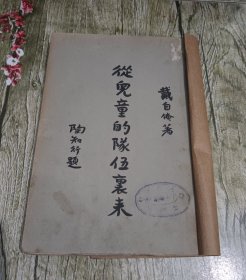 戴自俺著
從兒童的隊伍裏來
陶知行題